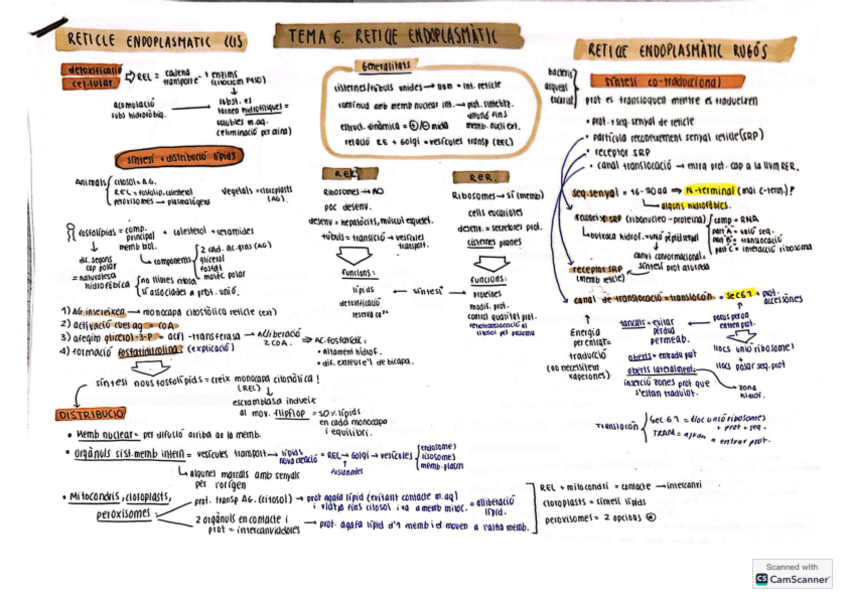 TEMA 6. RETICLE ENDOPLASMÀTIC
RETICLE ENDOPLASMATIC LLIS
detoxificació cel·lular
REL = cadena transport e- + enzims (citocrom P450)
acumulació subs hidrofòbiq.
síntesi + distribució lípids
Animals
citosol = A.G.
REL = fosfolip, colesterol
peroxisomes → plasmalògens
vegetals = cloroplasts (AG).
fosfolípids = comp. principal memb biol.
+ colesterol + ceramides
components
2 cad. àc. gras (AG)
glicerol
fosfat
molèc polar
dif. segons cap polar = naturalesa hidrofòbica
no lliures citosol
sí associades a prot. unió.
1) AG insereixen → monocapa citosòlica reticle (ext)
2) activació cues ag = COA
3) afegim glicerol-3-P = acil-transferasa → alliberació 2 COA.
4) formació fosfatidilcolina (explicació)
⇒ AC. fosfatídic:
• altament hidrof.
síntesi nous fosfolípids = creix monocapa citosòlica!
(REL)
escramblasa indueix
al mov. flipflop = 50% lípids
en cada monocapa
i equilibri.
DISTRIBUCIÓ
• Memb nuclear = per difusió arriba de la memb.
• Orgànuls sist. memb intern = vesícules transport → lípids nova creació = REL → Golgi → vesícules
endosomes
lisosomes
memb. plasm
fusionades
algunes marcats amb senyals per l'origen
• Mitocondris, cloroplasts, peroxisomes
prot. transp AG. (citosol) → prot agafa lípid (evitant contacte m. aq)
i viatja fins citosol i va a memb mitoc. = alliberació lípid.
2 orgànuls en contacte i prot = intercanviadores → prot. agafa lípid d'1 memb i el mouen a l'altra memb.
REL + mitocondri = contacte → intercanvi
cloroplasts = síntesi lípids
peroxisomes = 2 opcions
Generalitats
cisternes/túbuls unides → llum = int. reticle
relació RE + Golgi = vesícules transp (REL)
REL
Ribosomes → NO
poc desenv.
desenv = hepatòcits, múscul esquel.
túbuls = transició → vesícules transport.
funcions:
lípids
detoxificació
reserva Ca2+
← síntesi →
RER
Ribosomes → sí (memb)
cells eucariotes
desenv. = secretores prot.
cisternes planes
funcions:
proteïnes
modif. prot.
control qualitat prot.
RETICLE ENDOPLASMÀTIC RUGÓS
síntesi co-traduccional
bacteris
arqueas
eucariot
prot es transloquen mentre es tradueixen
• prot + seq senyal de reticle
• partícula reconeixement senyal reticle (SRP)
• receptor SRP
• canal translocació → entra prot. cap a la llum RER.
seq. senyal = 16-30 aa ⇒ N-terminal (mai C-term.)!
alguns hidrofòbics.
(ribonucleo-proteïna)
comp = RNA
receptor SRP (memb reticle)
canvi conformacional = síntesi prot aturada
canal de translocació = translocón = Sec61 + prot. accessòries
Energia per entrar = traducció (no necessitem xaperones)
tancats = evitar pèrdua permeab.
oberts = entrada prot
oberts lateralment =
inserció zones prot que s'estan traduint.
porus per on entren prot.
llocs unió ribosomes
llocs
zona hidrof.
Translocón
Sec 61 = lloc unió ribosomes + prot + seq.
Scanned with
CS CamScanner